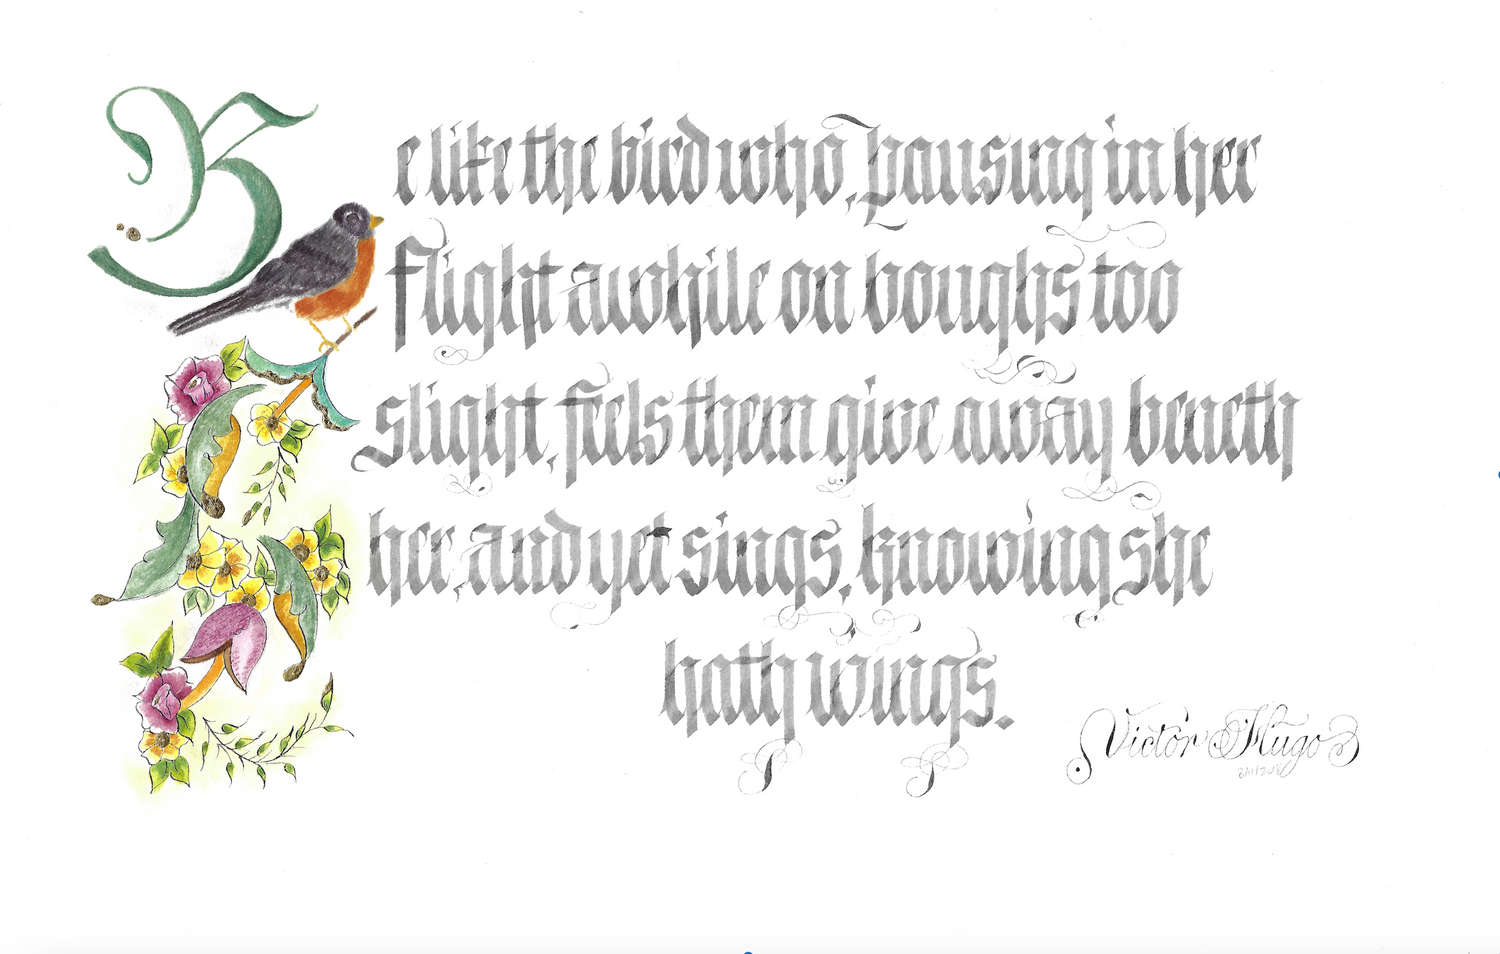 Be like the bird who, pausing in her
flight awhile on boughs too
slight, feels them give away beneath
her, and yet sings, knowing she
hath wings.
Victor Hugo